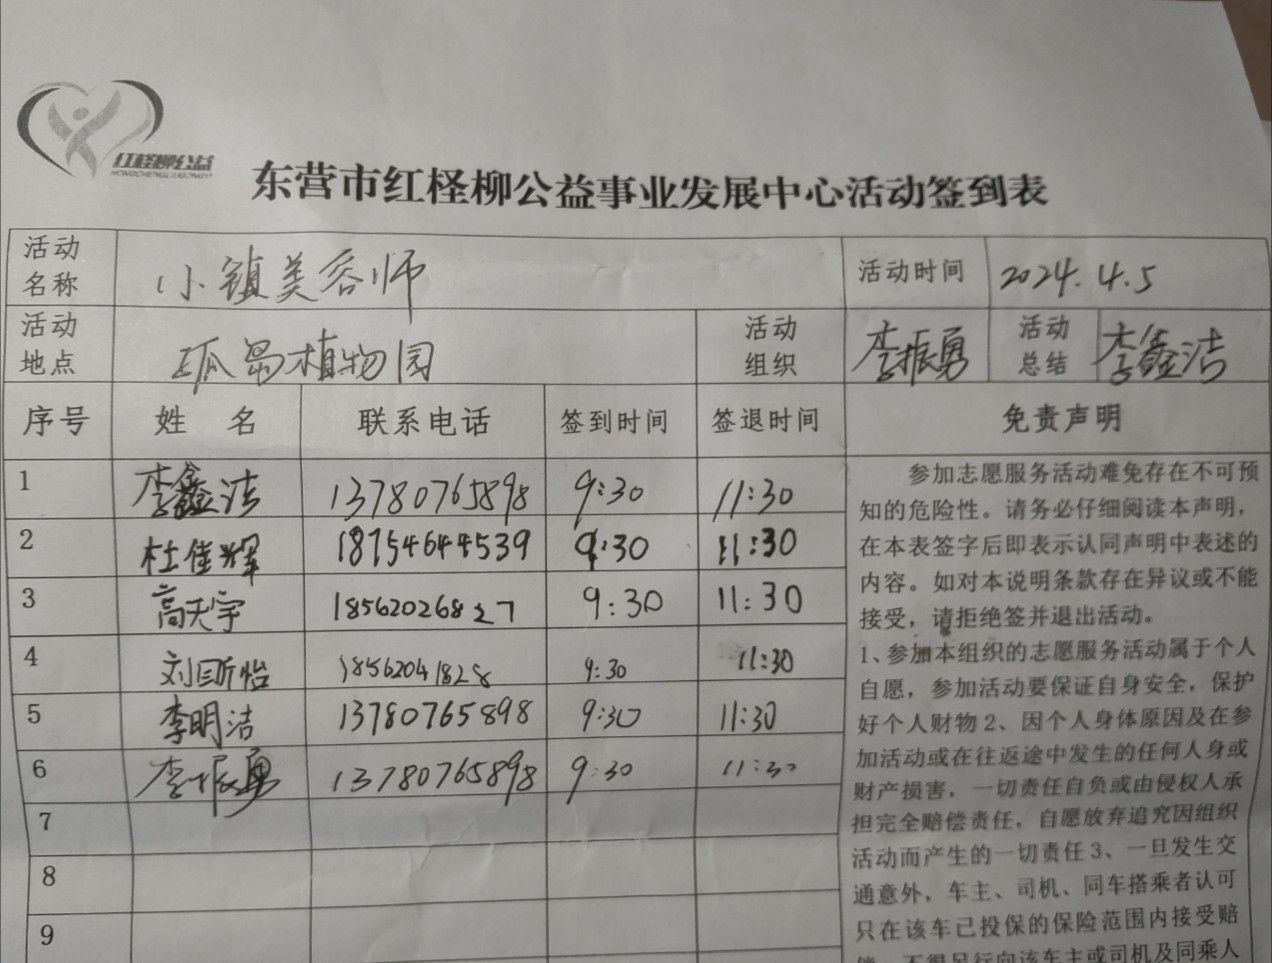 红柽柳公益
HONGCHENGLIUGONGYI
东营市红柽柳公益事业发展中心活动签到表
活动名称 小镇美容师 活动时间 2024.4.5
活动地点 孤岛植物园 活动组织 李振勇 活动总结 李鑫洁
序号 姓名 联系电话 签到时间 签退时间 免责声明
1 李鑫洁 13780765898 9:30 11:30
2 杜佳辉 18754644539 9:30 11:30
3 高天宇 18562026827 9:30 11:30
4 刘昕怡 18562041828 9:30 11:30
5 李明洁 13780765898 9:30 11:30
6 李振勇 13780765898 9:30 11:30
7
8
9
参加志愿服务活动难免存在不可预
知的危险性。请务必仔细阅读本声明，
在本表签字后即表示认同声明中表述的
内容。如对本说明条款存在异议或不能
接受，请拒绝签并退出活动。
1、参加本组织的志愿服务活动属于个人
自愿，参加活动要保证自身安全，保护
好个人财物2、因个人身体原因及在参
加活动或在往返途中发生的任何人身或
财产损害，一切责任自负或由侵权人承
担完全赔偿责任，自愿放弃追究因组织
活动而产生的一切责任3、一旦发生交
通意外，车主、司机、同车搭乘者认可
只在该车已投保的保险范围内接受赔
偿，不得另行向该车主或司机及同乘人